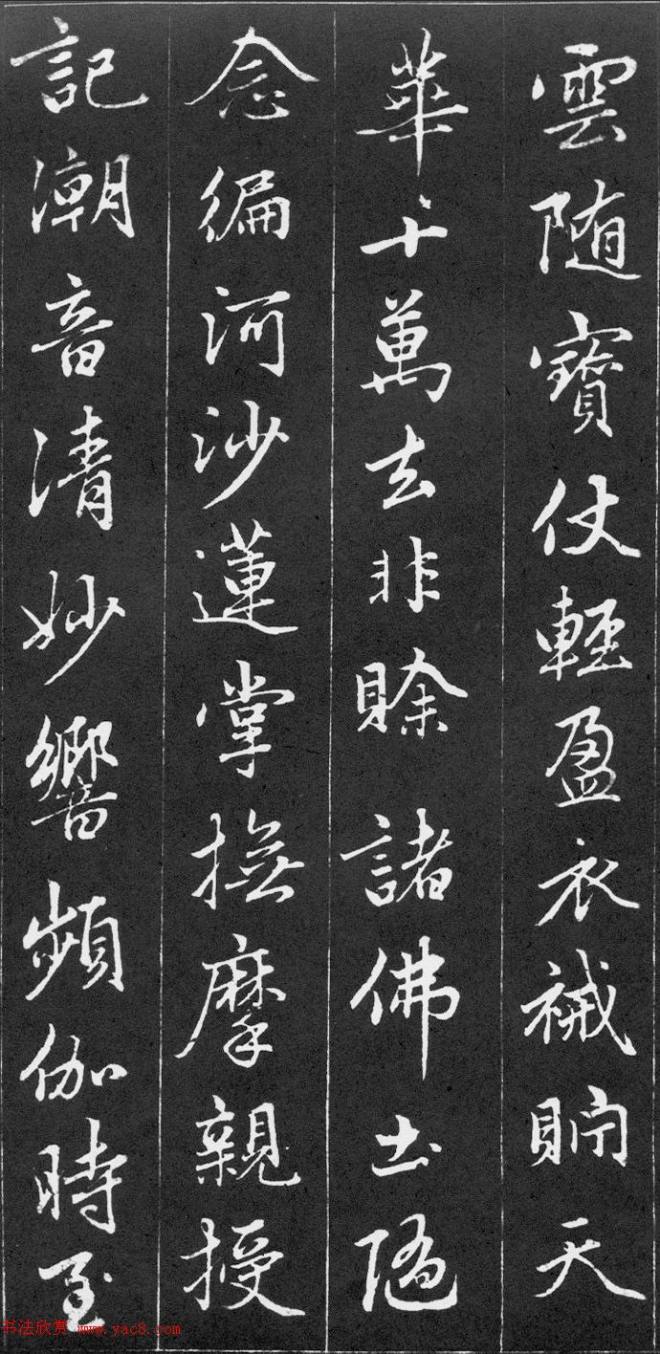 雲随寶仗輕盈衣祴貯天
華十萬去非賒諸佛土随
念徧河沙蓮掌撫摩親授
記潮音清妙響頻伽時至
书法欣赏 www.yac8.com